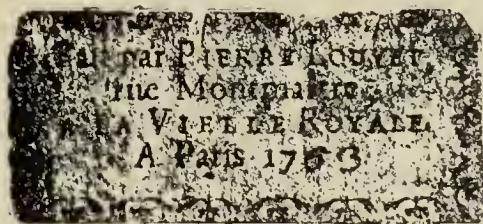 par PIERRE LOUVET,
rue Montmartre
VIELLE ROYALE.
A Paris